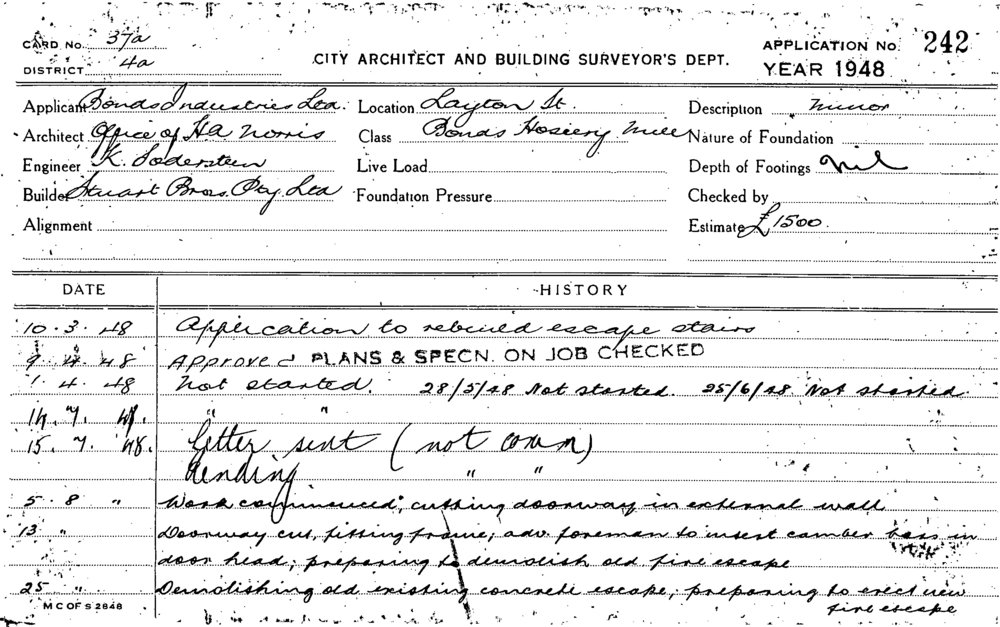 CARD No. 37a
DISTRICT 4a
CITY ARCHITECT AND BUILDING SURVEYOR'S DEPT.
APPLICATION No. 242
YEAR 1948
Applicant Bonds Industries Ltd. Location Layton St. Description minor
Architect Office of HA Norris Class Bonds Hosiery Mill Nature of Foundation
Engineer K. Sodersteen Live Load Depth of Footings nil
Builder Stuart Bros. Pty Ltd Foundation Pressure Checked by
Alignment Estimate £1500.
DATE HISTORY
10.3.48 Application to rebuild escape stairs
9.4.48 Approved PLANS & SPECN. ON JOB CHECKED
1.4.48 Not started. 28/5/48 Not started. 25/6/48 Not started.
14.7.48. " "
15.7.48. Letter sent (not comm)
Pending " "
5.8 " Work commenced; cutting doorway in external wall
13 " Doorway cut, fitting frame; adv. foreman to insert camber bars in
door head; preparing to demolish old fire escape
25 " Demolishing old existing concrete escape; preparing to erect new
fire escape
M C OF S 2848